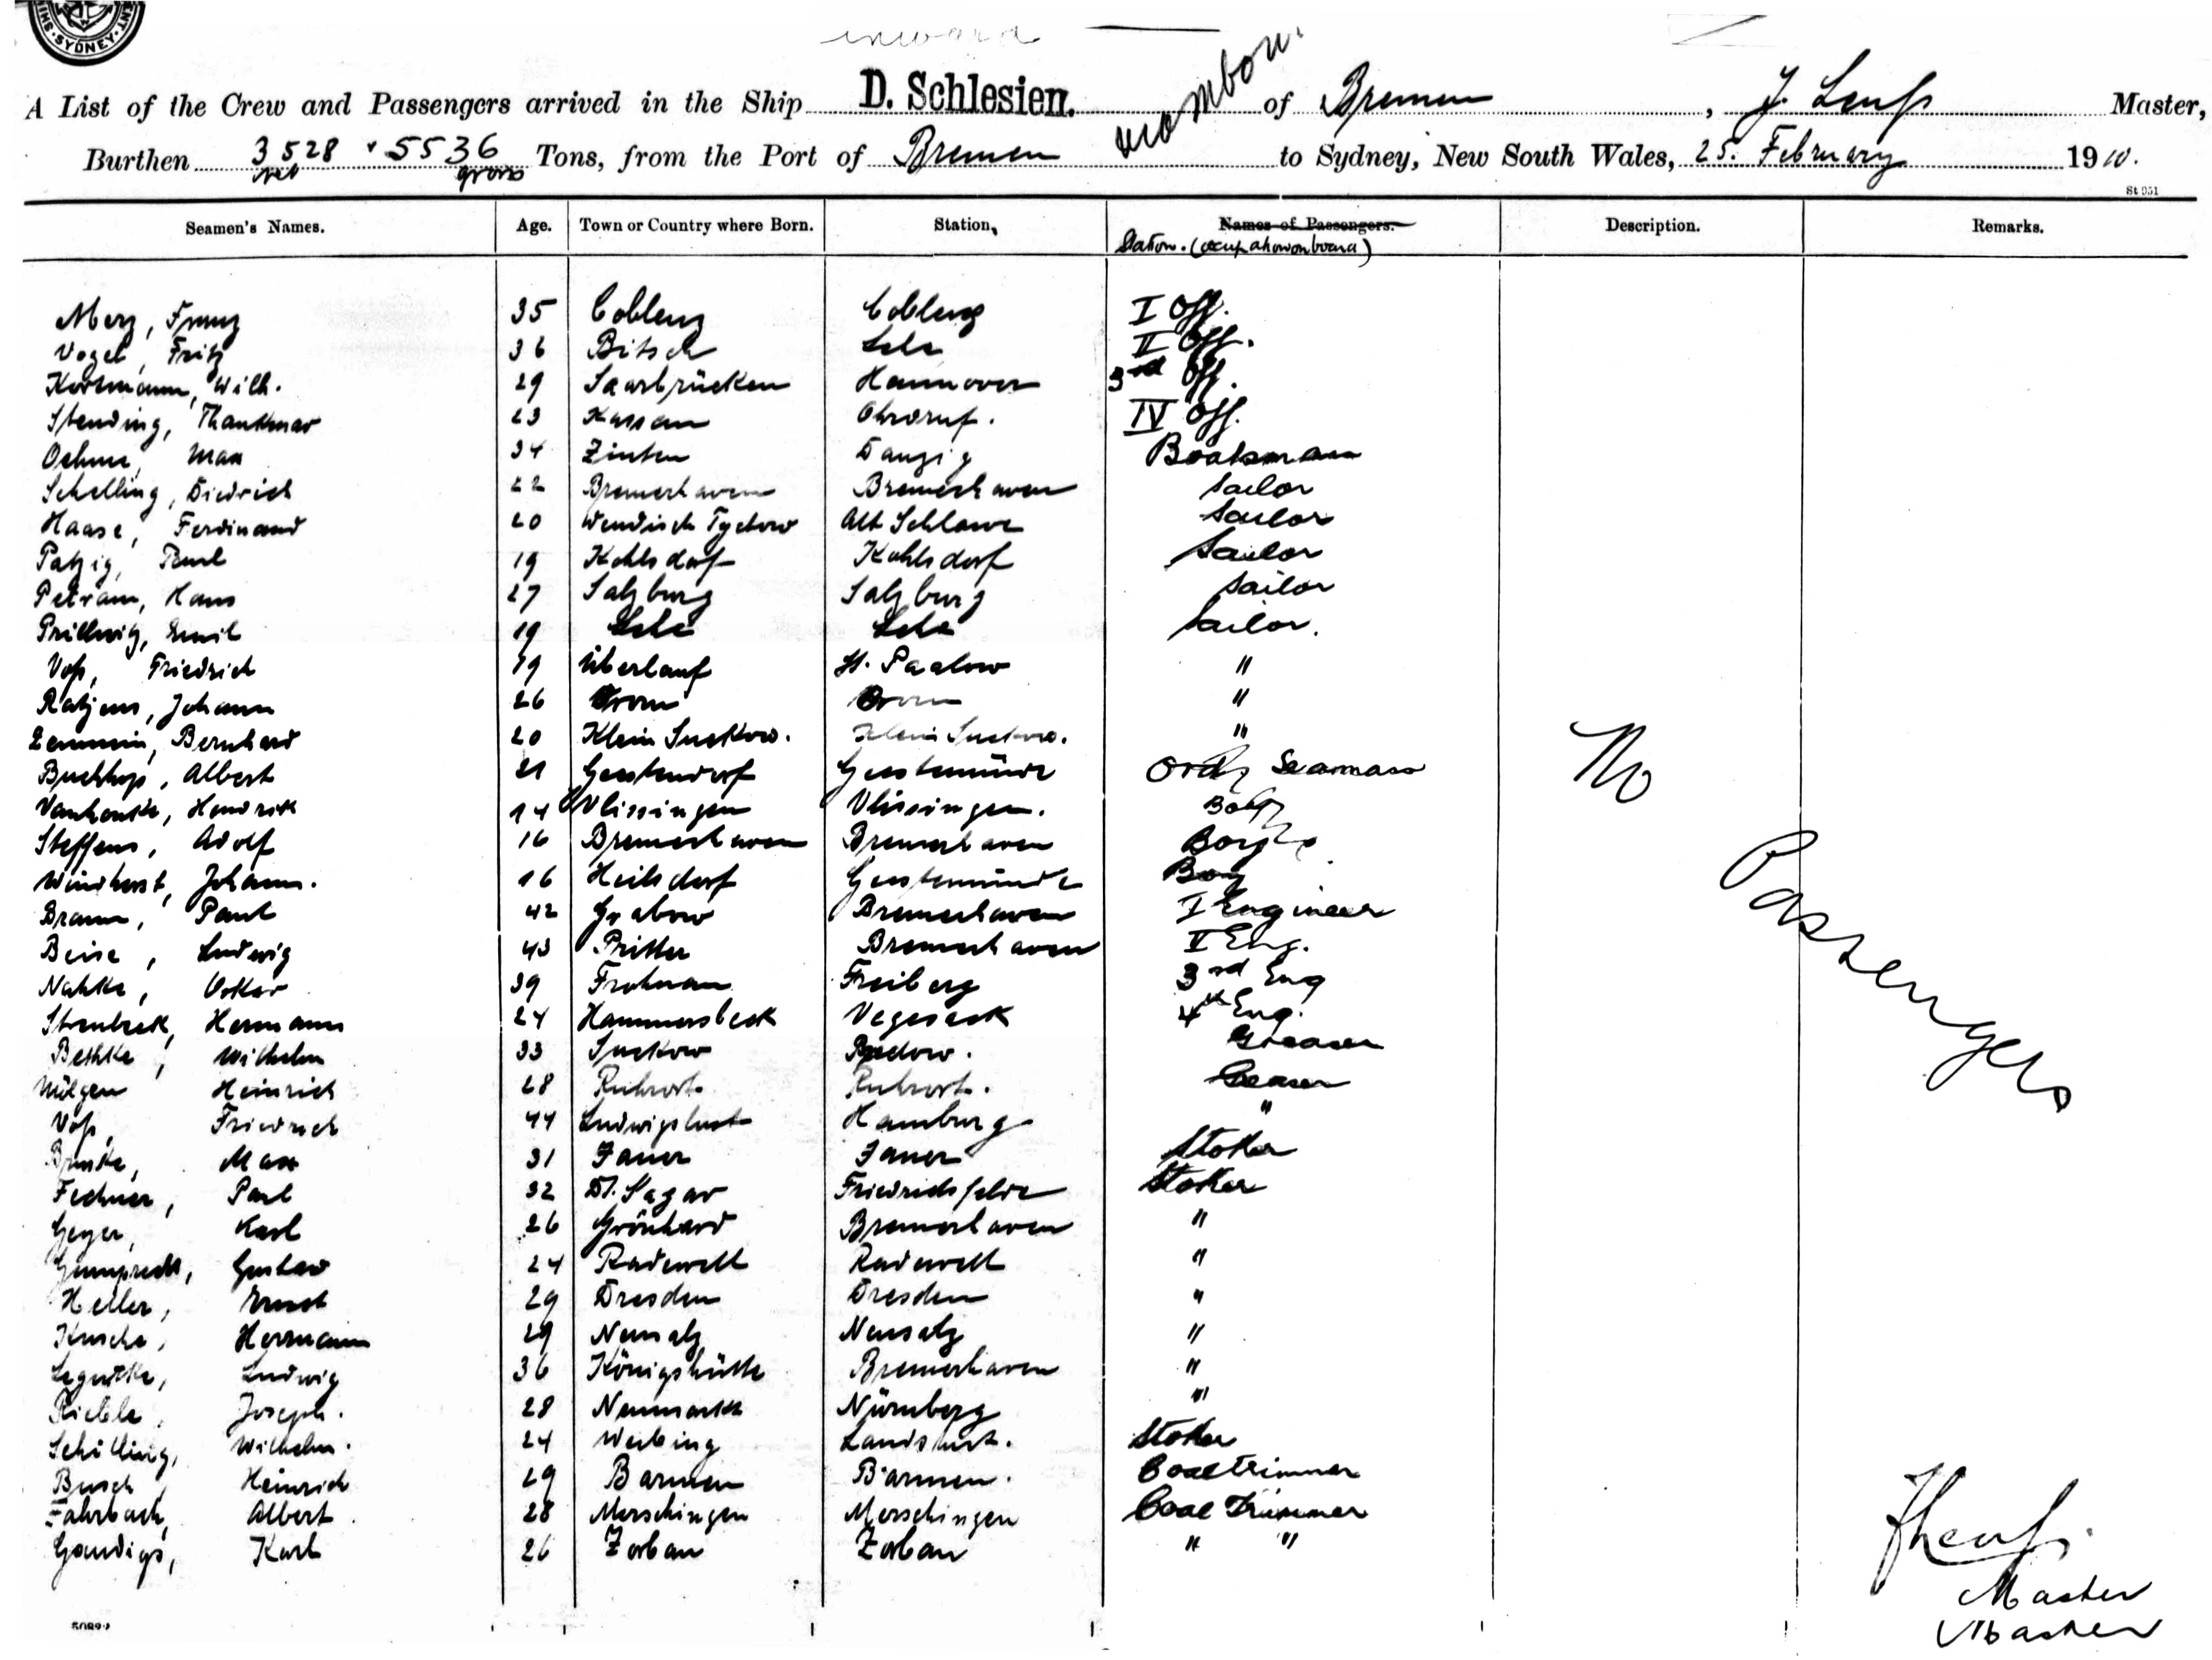 SYDNEY
inward
A List of the Crew and Passengers arrived in the Ship D. Schlesien. of Bremen, J. Leuß Master,
Burthen 3528 net 5536 gross Tons, from the Port of Bremen via to Sydney, New South Wales, 25. February 1910.
St 951
Seamen's Names. Age. Town or Country where Born. Station. Names of Passengers. Description. Remarks.
Station. (occupation on board)
Merz, Franz 35 Coblenz Coblenz I Off.
Vogel, Fritz 36 Bitsch Lehe II Off.
Kortmann, Wilh. 29 Saarbrücken Hannover 3rd Off.
Stending, Thankmar 23 Ohrdruf. IV Off.
Oehme, Max 34 Zinten Danzig Boatsman
Schelling, Diedrich 22 Bremerhaven Bremerhaven Sailor
Haase, Ferdinand 20 Wendisch Tychow Alt Schlawe Sailor
Patzig, Paul 19 Kohlsdorf Kohlsdorf Sailor
Petram, Hans 27 Salzburg Salzburg Sailor
Prillwitz, Emil 19 Lehe Lehe Sailor.
Voß, Friedrich 19 Überlauf "
Ratjens, Johann 26 "
Bernhard 20 Klein Suckow. Klein Suckow. "
Buckhop, Albert 21 Geestendorf Geestemünde Ordy Seaman
Hendrik 14 Vlissingen Vlissingen. Boy
Steffens, Adolf 16 Bremerhaven Bremerhaven Boy
Windhorst, Johann. 16 Heilsdorf Geestemünde Boy
Braun, Paul 42 Grabow Bremerhaven I Engineer
Beise, Ludwig 43 Pritter Bremerhaven II Eng.
Nahke, Oskar 39 Frohnau Freiberg 3rd Eng
Hermann 24 Hammersbeck Vegesack 4th Eng.
Bethke, Wilhelm 33 Suckow Greaser
Mölgen Heinrich 28 Ruhrort. Ruhrort. Greaser
Voß, Friedrich 44 Ludwigslust Hamburg "
Max 31 Jauer Jauer Stoker
Fechner, Paul 32 Dt. Sagar Friedrichsfelde Stoker
Geyer, Karl 26 Grönhard Bremerhaven "
Gumprecht, Gustav 24 Radewell Radewell "
Heller, Ernst 29 Dresden Dresden "
Kusche, Hermann 29 Neusalz Neusalz "
Legutke, Ludwig 36 Königshütte Bremerhaven "
Joseph. 28 Neumarkt Nürnberg "
Schilling, Wilhelm. 24 Weibing Landshut. Stoker
Busch, Heinrich 29 Barmen Barmen. Coal trimmer
Fahrbach, Albert 28 Merschingen Merschingen Coal Trimmer
Gaudigs, Karl 26 Zorbau Zorbau " "
No
Passengers
JLeuß.
Master
Master